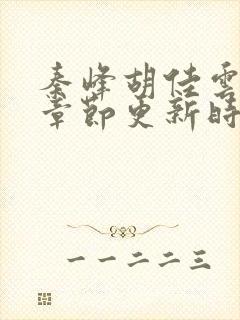 秦峰胡佳雲
章節更新時
一一二二三